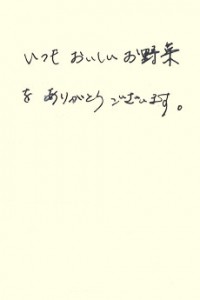 いつもおいしいお野菜
をありがとうございます。